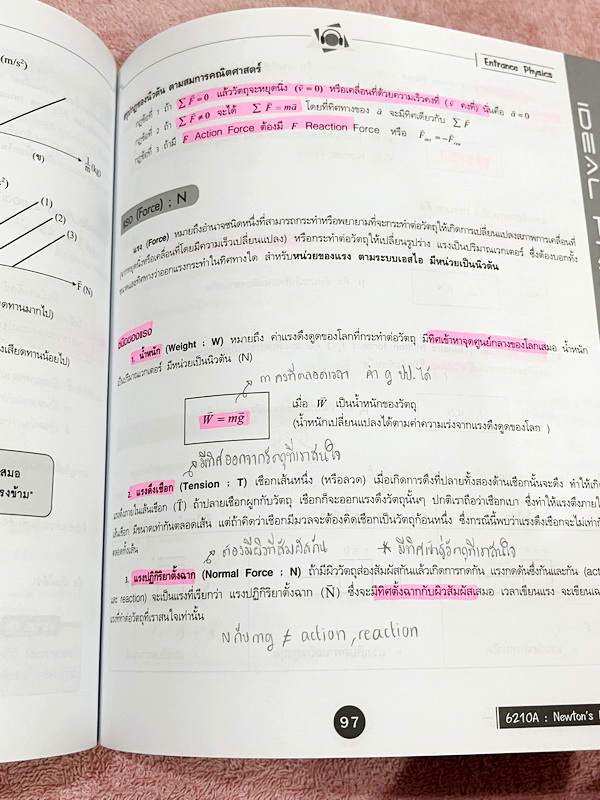 (m/s²)
(ข)
1/m (kg)
(1)
(2)
(3)
F⃗ (N)
ทานมากไป)
สียดทานน้อยไป)
สมอ
รงข้าม"
Entrance Physics
IDEAL
สรุปกฎของนิวตัน ตามสมการคณิตศาสตร์
กฎข้อที่ 1 ถ้า ∑F⃗ = 0 แล้ววัตถุจะหยุดนิ่ง (v⃗ = 0) หรือเคลื่อนที่ด้วยความเร็วคงที่ (v⃗ คงที่) นั่นคือ a⃗ = 0
กฎข้อที่ 2 ถ้า ∑F⃗ ≠ 0 จะได้ ∑F⃗ = ma⃗ โดยที่ทิศทางของ a⃗ จะมีทิศเดียวกับ ∑F⃗
กฎข้อที่ 3 ถ้ามี F Action Force ต้องมี F Reaction Force หรือ
แรง (Force) : N
แรง (Force) หมายถึงอำนาจชนิดหนึ่งที่สามารถกระทำหรือพยายามที่จะกระทำต่อวัตถุให้เกิดการเปลี่ยนแปลงสภาพการเคลื่อนที่
(จากหยุดนิ่งหรือเคลื่อนที่โดยมีความเร็วเปลี่ยนแปลง) หรือกระทำต่อวัตถุให้เปลี่ยนรูปร่าง แรงเป็นปริมาณเวกเตอร์ ซึ่งต้องบอกทั้ง
ขนาดและทิศทางว่าออกแรงกระทำในทิศทางใด สำหรับหน่วยของแรง ตามระบบเอสไอ มีหน่วยเป็นนิวตัน
ชนิดของแรง
1. น้ำหนัก (Weight : W) หมายถึง ค่าแรงดึงดูดของโลกที่กระทำต่อวัตถุ มีทิศเข้าหาจุดศูนย์กลางของโลกเสมอ น้ำหนัก
เป็นปริมาณเวกเตอร์ มีหน่วยเป็นนิวตัน (N)
m คงที่ตลอดเวลา ค่า g ปป.ได้
W⃗ = mg⃗
เมื่อ W⃗ เป็นน้ำหนักของวัตถุ
(น้ำหนักเปลี่ยนแปลงได้ตามค่าความเร่งจากแรงดึงดูดของโลก )
มีทิศออกจากวัตถุที่เราสนใจ
2. แรงดึงเชือก (Tension : T) เชือกเส้นหนึ่ง (หรือลวด) เมื่อเกิดการดึงที่ปลายทั้งสองด้านเชือกนั้นจะตึง ทำให้เกิ
แรงดึงภายในเส้นเชือก (T⃗) ถ้าปลายเชือกผูกกับวัตถุ เชือกก็จะออกแรงดึงวัตถุนั้นๆ ปกติเราถือว่าเชือกเบา ซึ่งทำให้แรงดึงภายใ
เส้นเชือก มีขนาดเท่ากันตลอดเส้น แต่ถ้าคิดว่าเชือกมีมวลจะต้องคิดเชือกเป็นวัตถุก้อนหนึ่ง ซึ่งกรณีนี้พบว่าแรงดึงเชือกจะไม่เท่ากั
ตลอดทั้งเส้น
ต้องมีผิวที่สัมผัสกัน * มีทิศพุ่งสู่วัตถุที่เราสนใจ
3. แรงปฏิกิริยาตั้งฉาก (Normal Force : N) ถ้ามีผิววัตถุสองสัมผัสกันแล้วเกิดการกดกัน แรงกดดันซึ่งกันและกัน (act
และ reaction) จะเป็นแรงที่เรียกว่า แรงปฏิกิริยาตั้งฉาก (N⃗) ซึ่งจะมีทิศตั้งฉากกับผิวสัมผัสเสมอ เวลาเขียนแรง จะเขียนเฉ
แรงที่ทำต่อวัตถุที่เราสนใจเท่านั้น
N กับ mg ≠ action , reaction
97
6210A : Newton's